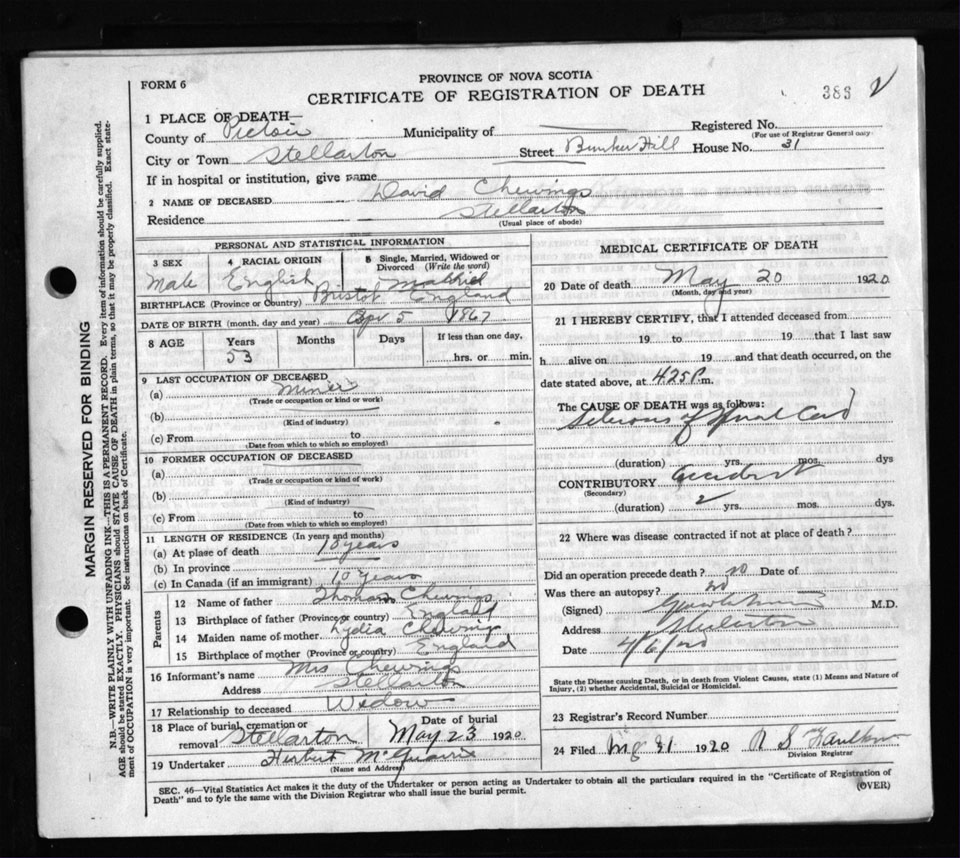 FORM 6
PROVINCE OF NOVA SCOTIA
CERTIFICATE OF REGISTRATION OF DEATH
383 2
1 PLACE OF DEATH—
County of Pictou Municipality of Registered No.
(For use of Registrar General only)
City or Town Stellarton Street Bunker Hill House No. 31
If in hospital or institution, give name
2 NAME OF DECEASED David Chewings
Residence Stellarton
(Usual place of abode)
PERSONAL AND STATISTICAL INFORMATION
3 SEX Male
4 RACIAL ORIGIN English
5 Single, Married, Widowed or Divorced (Write the word)
BIRTHPLACE (Province or Country) Bristol England
DATE OF BIRTH (month, day and year) Apr 5 1867
8 AGE Years Months Days If less than one day,
53 hrs. or min.
9 LAST OCCUPATION OF DECEASED
(a) Miner
(Trade or occupation or kind or work)
(b)
(Kind of industry)
(c) From to
(Date from which to which so employed)
10 FORMER OCCUPATION OF DECEASED
(a)
(Trade or occupation or kind of work)
(b)
(Kind of industry)
(c) From to
(Date from which to which so employed)
11 LENGTH OF RESIDENCE (In years and months)
(a) At place of death 10 years
(b) In province
(c) In Canada (if an immigrant) 10 years
Parents
12 Name of father Thomas Chewings
13 Birthplace of father (Province or country) England
14 Maiden name of mother Lydia
15 Birthplace of mother (Province or country) England
16 Informant's name Mrs Chewings
Address Stellarton
17 Relationship to deceased Widow
18 Place of burial, cremation or removal Stellarton
Date of burial May 23 1920
19 Undertaker Herbert
(Name and Address)
MEDICAL CERTIFICATE OF DEATH
20 Date of death May 20 1920
(Month, day and year)
21 I HEREBY CERTIFY, that I attended deceased from
19 to 19 that I last saw
h alive on 19 and that death occurred, on the
date stated above, at 4.25 P m.
The CAUSE OF DEATH was as follows:
of Spinal Cord
(duration) yrs. mos. dys
CONTRIBUTORY Accident
(Secondary)
(duration) 2 yrs. mos. dys.
22 Where was disease contracted if not at place of death?
Did an operation precede death? no Date of
Was there an autopsy? no
(Signed) M.D.
Address Stellarton
Date 4/6/20
State the Disease causing Death, or in death from Violent Causes, state (1) Means and Nature of
Injury, (2) whether Accidental, Suicidal or Homicidal.
23 Registrar's Record Number
24 Filed 1920
Division Registrar
SEC. 46—Vital Statistics Act makes it the duty of the Undertaker or person acting as Undertaker to obtain all the particulars required in the "Certificate of Registration of
Death" and to fyle the same with the Division Registrar who shall issue the burial permit.
(OVER)
MARGIN RESERVED FOR BINDING
N.B.—WRITE PLAINLY WITH UNFADING INK—THIS IS A PERMANENT RECORD. Every item of information should be carefully supplied.
AGE should be stated EXACTLY. PHYSICIANS should STATE CAUSE OF DEATH in plain terms, so that it may be properly classified. Exact state-
ment of OCCUPATION is very important. See instructions on back of Certificate.